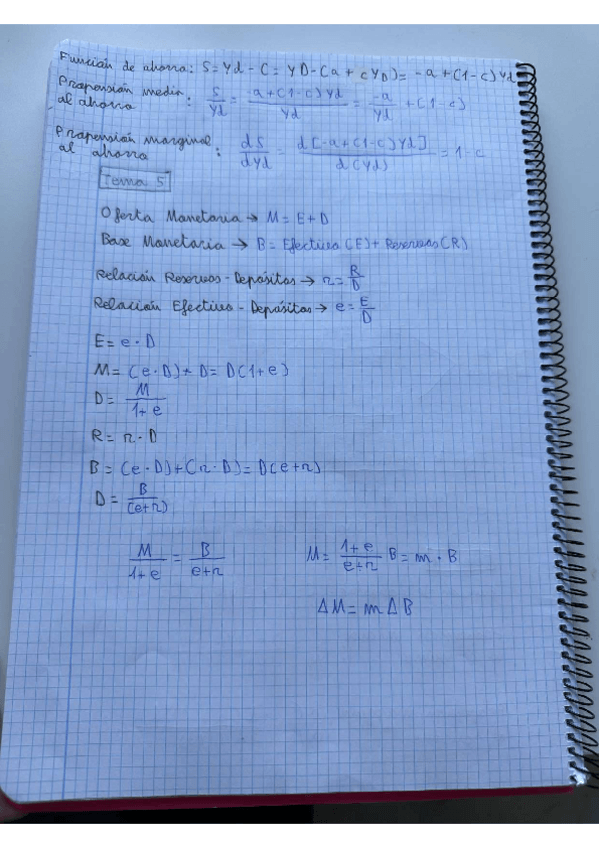 Función de ahorro: S = Yd - C = YD - (a + cYD) = -a + (1-c) Yd
Propensión media al ahorro : S/Yd = -a + (1-c) Yd / Yd = -a/Yd + (1-c)
Propensión marginal al ahorro : dS/dYd = d[-a + (1-c) Yd] / d(Yd) = 1-c
Tema 5
Oferta Monetaria → M = E + D
Base Monetaria → B = Efectivo (E) + Reservas (R)
Relación Reservas - Depósitos → r = R/D
Relación Efectivo - Depósitos → e = E/D
E = e · D
M = (e · D) + D = D(1+e)
D = M / 1+e
R = r · D
B = (e · D) + (r · D) = D(e+r)
D = B / (e+r)
M / 1+e = B / e+r M = 1+e / e+r B = m · B
ΔM = m ΔB